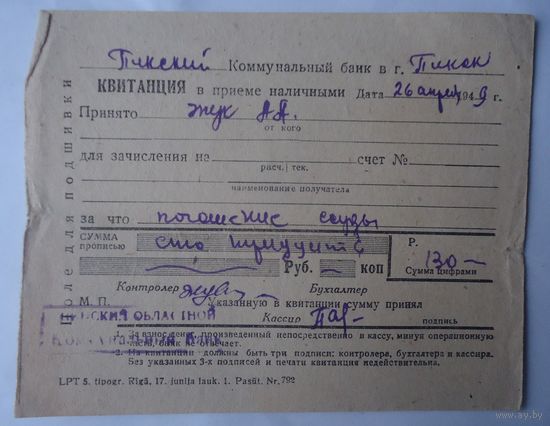 Пинский Коммунальный банк в г. Пинск
КВИТАНЦИЯ в приеме наличными Дата 26 апреля 1949 г.
Принято Жук А.А.
от кого
для зачисления на счет №
расч./тек.
наименование получателя
за что погашение ссуды
СУММА прописью сто тридцать
Р. 130 —
Руб. — коп
Сумма цифрами
Контролер Бухгалтер
М. П. Указанную в квитанции сумму принял
Кассир
подпись
ПИНСКИЙ ОБЛАСТНОЙ
КОММУНАЛЬНЫЙ БАНК
1. За взнос, не произведенный непосредственно в кассу, минуя операционную
части, банк не отвечает.
2. На квитанции должны быть три подписи: контролера, бухгалтера и кассира.
Без указанных 3-х подписей и печати квитанция недействительна.
LPT 5. tipogr. Rīgā, 17. jūnija lauk. 1. Pasūt. Nr. 792
Поле для подшивки
ay.by